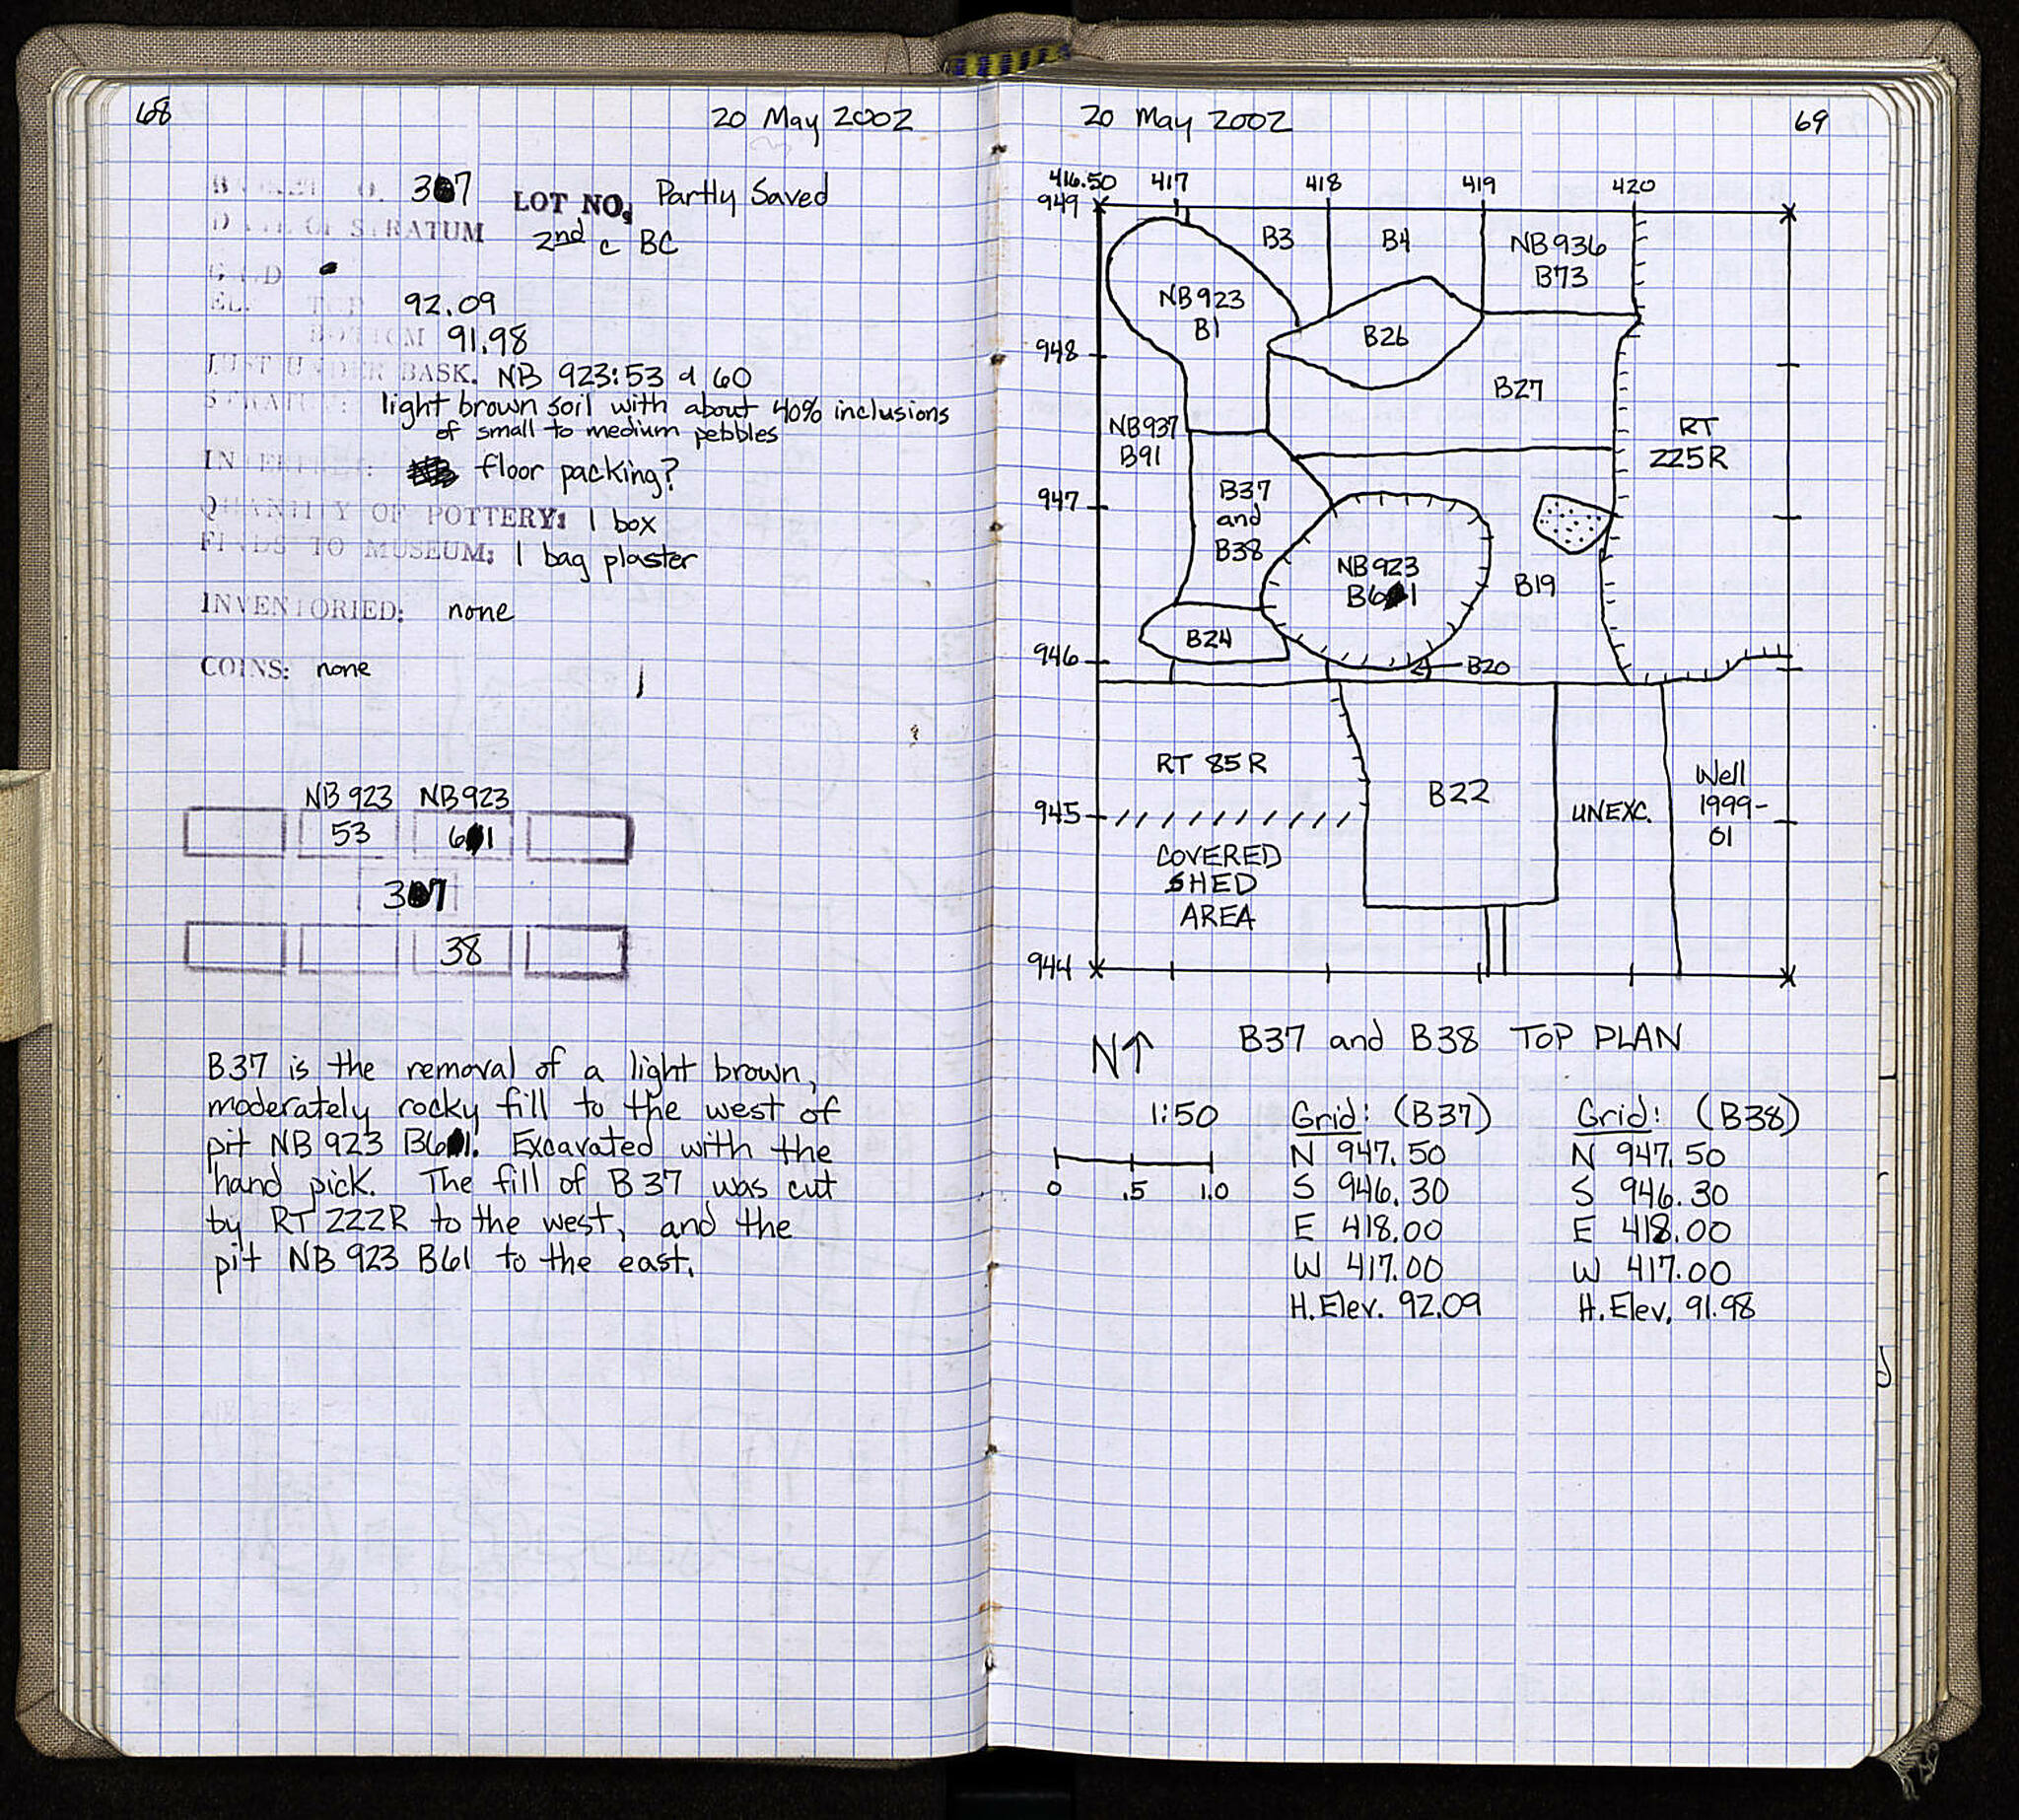 68
20 May 2002
37
LOT NO. Partly Saved
STRATUM 2nd c BC
EL. TOP 92.09
BOTTOM 91.98
JUST UNDER BASK. NB 923:53 & 60
light brown soil with about 40% inclusions
of small to medium pebbles
floor packing?
QUANTITY OF POTTERY: 1 box
FINDS TO MUSEUM: 1 bag plaster
INVENTORIED: none
COINS: none
NB 923 NB 923
53 61
37
38
B37 is the removal of a light brown,
moderately rocky fill to the west of
pit NB 923 B61. Excavated with the
hand pick. The fill of B37 was cut
by RT 222R to the west, and the
pit NB 923 B61 to the east.
20 May 2002
69
416.50 417 418 419 420
949
B3
B4
NB 936
B73
NB 923
B1
B26
948
B27
NB 937
B91
RT
225R
947
B37
and
B38
NB 923
B61
B19
B24
946
B20
RT 85R
B22
Well
1999-
01
945
UNEXC.
COVERED
SHED
AREA
944
N↑
B37 and B38 TOP PLAN
1:50
0 .5 1.0
Grid: (B37)
N 947.50
S 946.30
E 418.00
W 417.00
H. Elev. 92.09
Grid: (B38)
N 947.50
S 946.30
E 418.00
W 417.00
H. Elev. 91.98